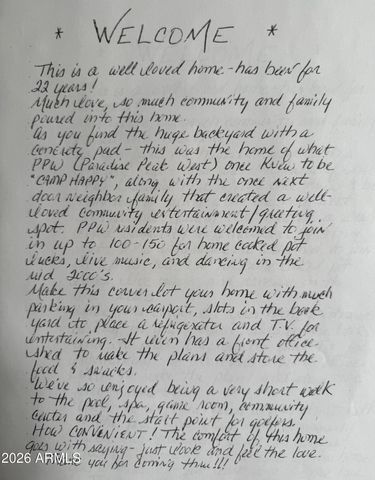 * WELCOME *
This is a well loved home - has been for
22 years!
Much love, so much community and family
poured into this home.
As you find the huge backyard with a
concrete pad - this was the home of what
PPW (Paradise Peak West) once knew to be
"CAMP HAPPY", along with the once next
door neighbor family that created a well-
loved community entertainment/greeting
spot. PPW residents were welcomed to join
in up to 100-150 for home cooked pot
lucks, live music, and dancing in the
mid 2000's.
Make this corner lot your home with much
parking in your carport, slots in the back
yard to place a refrigerator and T.V. for
entertaining. It even has a front office
shed to make the plans and store the
food & snacks.
We've so enjoyed being a very short walk
to the pool, spa, game room, community
center and the start point for golfers.
HOW CONVENIENT! The comfort of this home
goes with saying - just look and feel the love.
you for coming thru!!!
2026 ARMLS